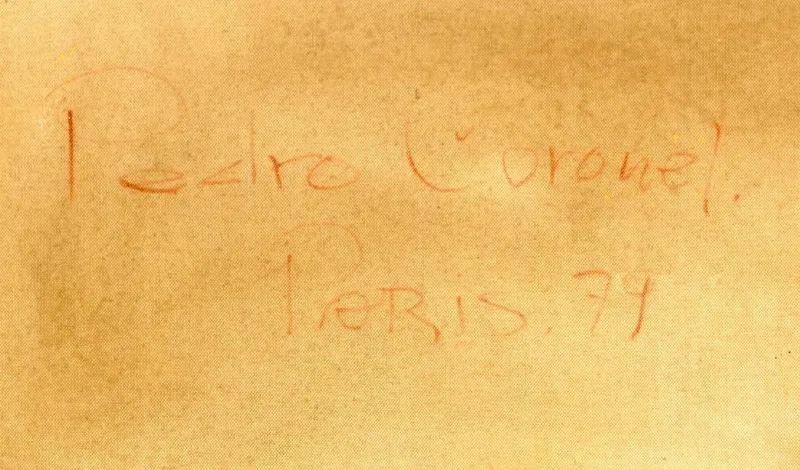 Pedro Coronel.
PARIS. 79